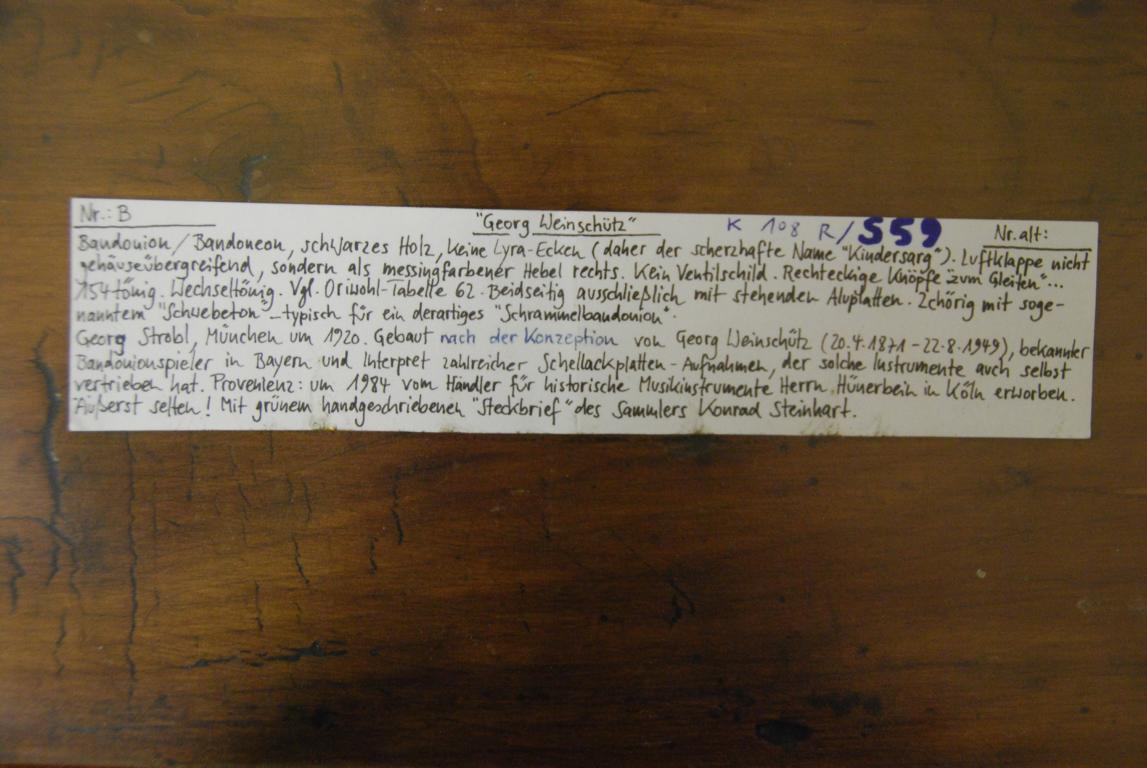 Nr.: B "Georg Weinschütz" K 108 R/S59 Nr. alt:
Bandonion / Bandoneon, schwarzes Holz, keine Lyra-Ecken (daher der scherzhafte Name "Kindersarg"). Luftklappe nicht
gehäuseübergreifend, sondern als messingfarbener Hebel rechts. Kein Ventilschild. Rechteckige Knöpfe "zum Gleiten"...
154tönig. Wechseltönig. Vgl. Oriwohl-Tabelle 62. Beidseitig ausschließlich mit stehenden Aluplatten. 2chörig mit soge-
nanntem "Schwebeton" – typisch für ein derartiges "Schrammelbandonion".
Georg Strobl, München um 1920. Gebaut nach der Konzeption von Georg Weinschütz (20.4.1871 - 22.8.1949), bekannter
Bandonionspieler in Bayern und Interpret zahlreicher Schellackplatten-Aufnahmen, der solche Instrumente auch selbst
vertrieben hat. Provenienz: um 1984 vom Händler für historische Musikinstrumente Herrn Hünerbein in Köln erworben.
Äußerst selten! Mit grünem handgeschriebenen "Steckbrief" des Sammlers Konrad Steinhart.